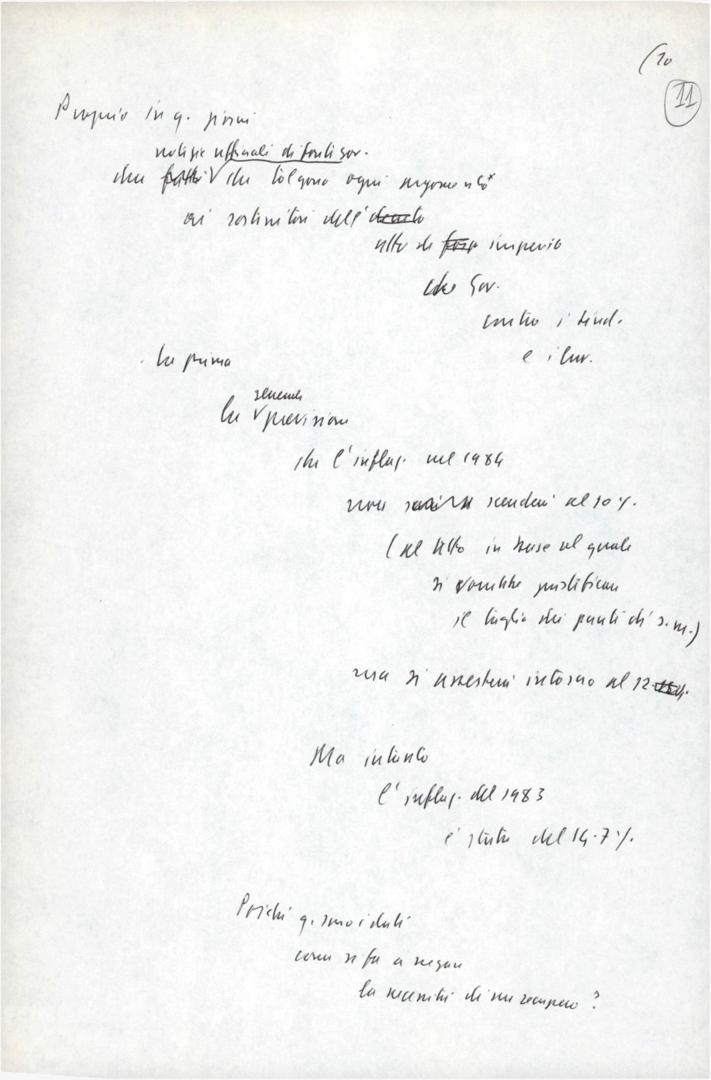 (10
11
Proprio in q. giorni
notizie ufficiali di fonti gov.
due fatti che tolgono ogni argomento*
ai sostenitori dell'decreto
atto di forza imperio
del Gov.
contro i sind.
e i lav.
- la prima
la recente previsione
che l'inflaz. nel 1984
non scenderà al 10%.
(al tetto in base al quale
si vorrebbe giustificare
il taglio dei punti di s.m.)
ma si assesterà intorno al 12
Ma intanto
l'inflaz. del 1983
è stata del 14.7%.
Poiché q. sono i dati
come si fa a negare
la necessità di un recupero?